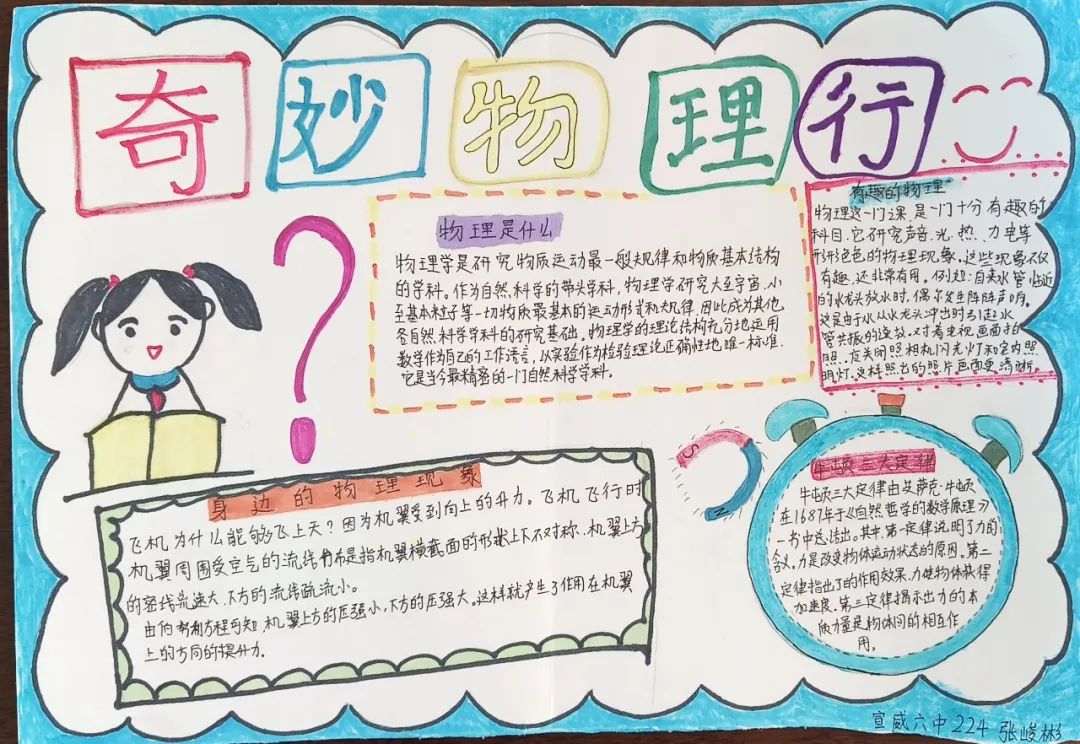 奇妙物理行
物理是什么
物理学是研究物质运动最一般规律和物质基本结构
的学科。作为自然科学的带头学科，物理学研究大至宇宙，小
至基本粒子等一切物质最基本的运动形式和规律，因此成为其他
各自然科学学科的研究基础。物理学的理论结构充分地运用
数学作为自己的工作语言，以实验作为检验理论正确性地唯一标准，
它是当今最精密的一门自然科学学科。
有趣的物理
物理这一门课是一门十分有趣的
科目，它研究声音、光、热、力电等
形形色色的物理现象。这些现象不仅
有趣，还非常有用。例如：自来水管临近
的水龙头放水时，偶尔发生阵阵声响。
这是由于水从水龙头冲出时引起水
管共振的缘故。对着电视画面拍
照，应关闭照相机闪光灯和室内照
明灯，这样照出的照片画面更清晰。
身边的物理现象
飞机为什么能够飞上天？因为机翼受到向上的升力。飞机飞行时
机翼周围受空气的流线分布是指机翼横截面的形状上下不对称，机翼上方
的密线流速大，下方的流线疏流小。
由伯努利方程可知，机翼上方的压强小，下方的压强大。这样就产生了作用在机翼
上的方向的提升力。
S
N
牛顿三大定律
牛顿三大定律由艾萨克·牛顿
在1687年于《自然哲学的数学原理》
一书中总结出。其中，第一定律说明了力的
含义。力是改变物体运动状态的原因。第二
定律指出了的作用效果，力使物体获得
加速度。第三定律揭示出力的本
质力量是物体间的相互作
用。
宣威六中224 张峻彬